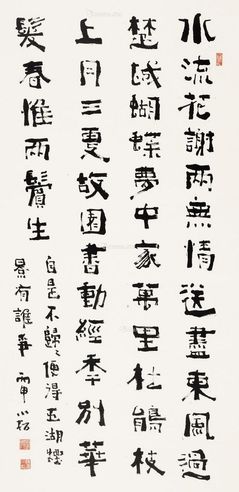 水流花謝兩無情送盡東風過
楚城蝴蝶夢中家萬里杜鵑枝
上月三更故園書動經秊別華
髮春惟兩鬢生
自是不歸々便得五湖煙
景有誰爭 丙申 小松